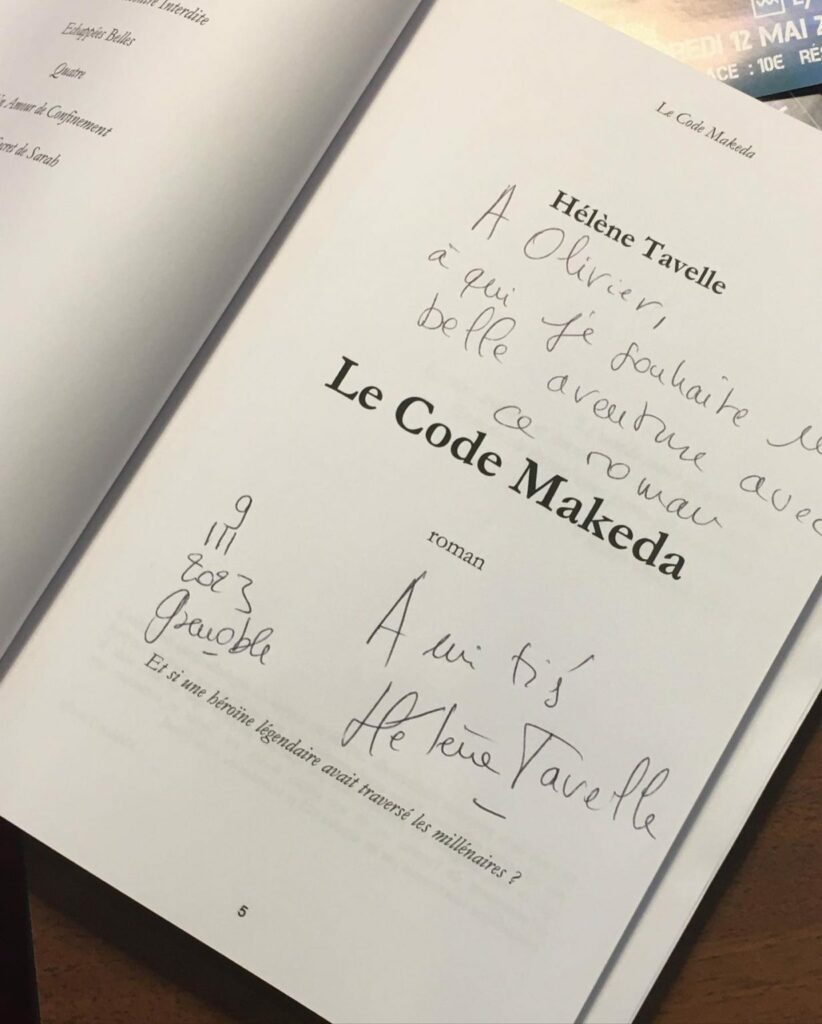 Interdite
Echappées Belles
Quatre
Amour de Confinement
de Sarah
EDI 12 MAI 2
ACE : 10E RÉS
Le Code Makeda
Hélène Tavelle
A Olivier,
à qui je souhaite
belle aventure avec
ce roman
Le Code Makeda
roman
9
III
2023
Grenoble
Amitiés
Hélène Tavelle
Et si une héroïne légendaire avait traversé les millénaires ?
5